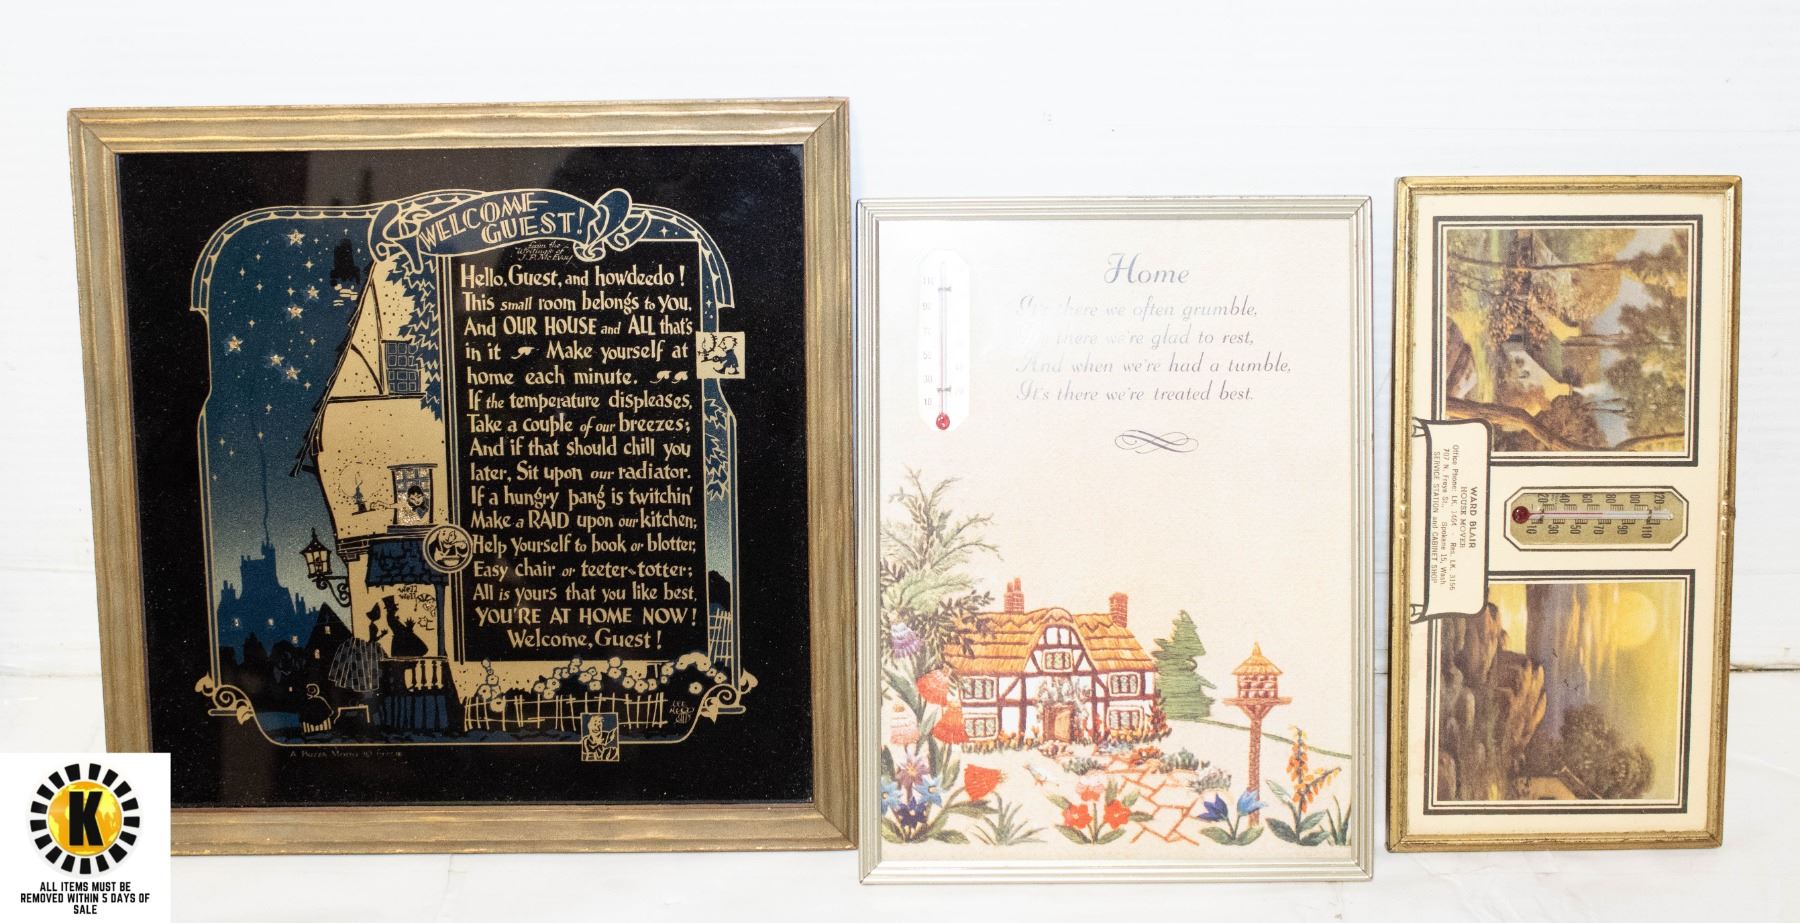 WELCOME
GUEST!
from the
Writings of
J.P. McEvoy
Hello, Guest, and howdeedo!
This small room belongs to you,
And OUR HOUSE and ALL that's
in it Make yourself at
home each minute.
If the temperature displeases,
Take a couple of our breezes;
And if that should chill you
later, Sit upon our radiator.
If a hungry pang is twitchin'
Make a RAID upon our kitchen;
Help yourself to book or blotter,
Easy chair or teeter-totter;
All is yours that you like best,
YOU'RE AT HOME NOW!
Welcome, Guest!
A Buzza Motto
Home
It's there we often grumble,
there we're glad to rest,
And when we're had a tumble,
It's there we're treated best.
110
90
70
50
30
10
WARD BLAIR
HOUSE MOVER
Office Phone: LK. 1464 Res. LK. 3156
707 N. Freya St. Spokane 15, Wash.
SERVICE STATION and CABINET SHOP
20 40 60 80 100 120
10 30 50 70 90 110
K
ALL ITEMS MUST BE
REMOVED WITHIN 5 DAYS OF
SALE